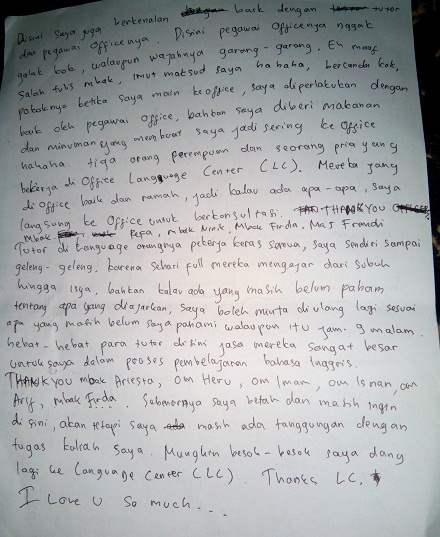 Disini Saya juga berkenalan baik dengan tutor
dan pegawai officenya. Disini pegawai officenya nggak
galak kok, walaupun wajahnya garang-garang. Eh maaf
salah tulis mbak, imut maksud saya hahaha, bercanda kok,
pokoknya ketika saya main ke office, saya diperlakukan dengan
baik oleh pegawai office, bahkan saya diberi makanan
dan minuman yang membuat saya jadi sering ke office
hahaha tiga orang perempuan dan seorang pria yang
bekerja di Office Language Center (LC). Mereka yang
di office baik dan ramah, jadi kalau ada apa-apa, saya
langsung ke office untuk berkonsultasi. THANK YOU
Mbak Refa, mbak Ninik, Mbak Firda, Mas Frendi
Tutor di Language orangnya pekerja keras semua, saya sendiri sampai
geleng-geleng, karena sehari full mereka mengajar dari subuh
hingga isya, bahkan kalau ada yang masih belum paham
tentang apa yang diajarkan, saya boleh minta diulang lagi sesuai
apa yang masih belum saya pahami walaupun itu jam 9 malam.
hebat-hebat para tutor disini jasa mereka sangat besar
untuk saya dalam proses pembelajaran bahasa Inggris.
THANK you mbak Ariesta, Om Heru, om Imam, om Isnan, om
Ary, mbak Firda. Sebenarnya saya betah dan masih ingin
di sini, akan tetapi saya masih ada tanggungan dengan
tugas kuliah saya. Mungkin besok-besok saya dang
lagi ke Language Center (LC). Thanks LC.
I Love U So much...